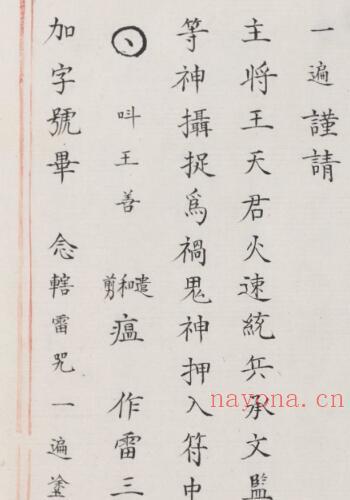 一遍謹請
主將王天君火速統兵承文監
等神攝捉爲禍鬼神押入符中
叫王善 遣和剪瘟 作雷三
加字號畢 念轄雷咒一遍塗
nayona.cn